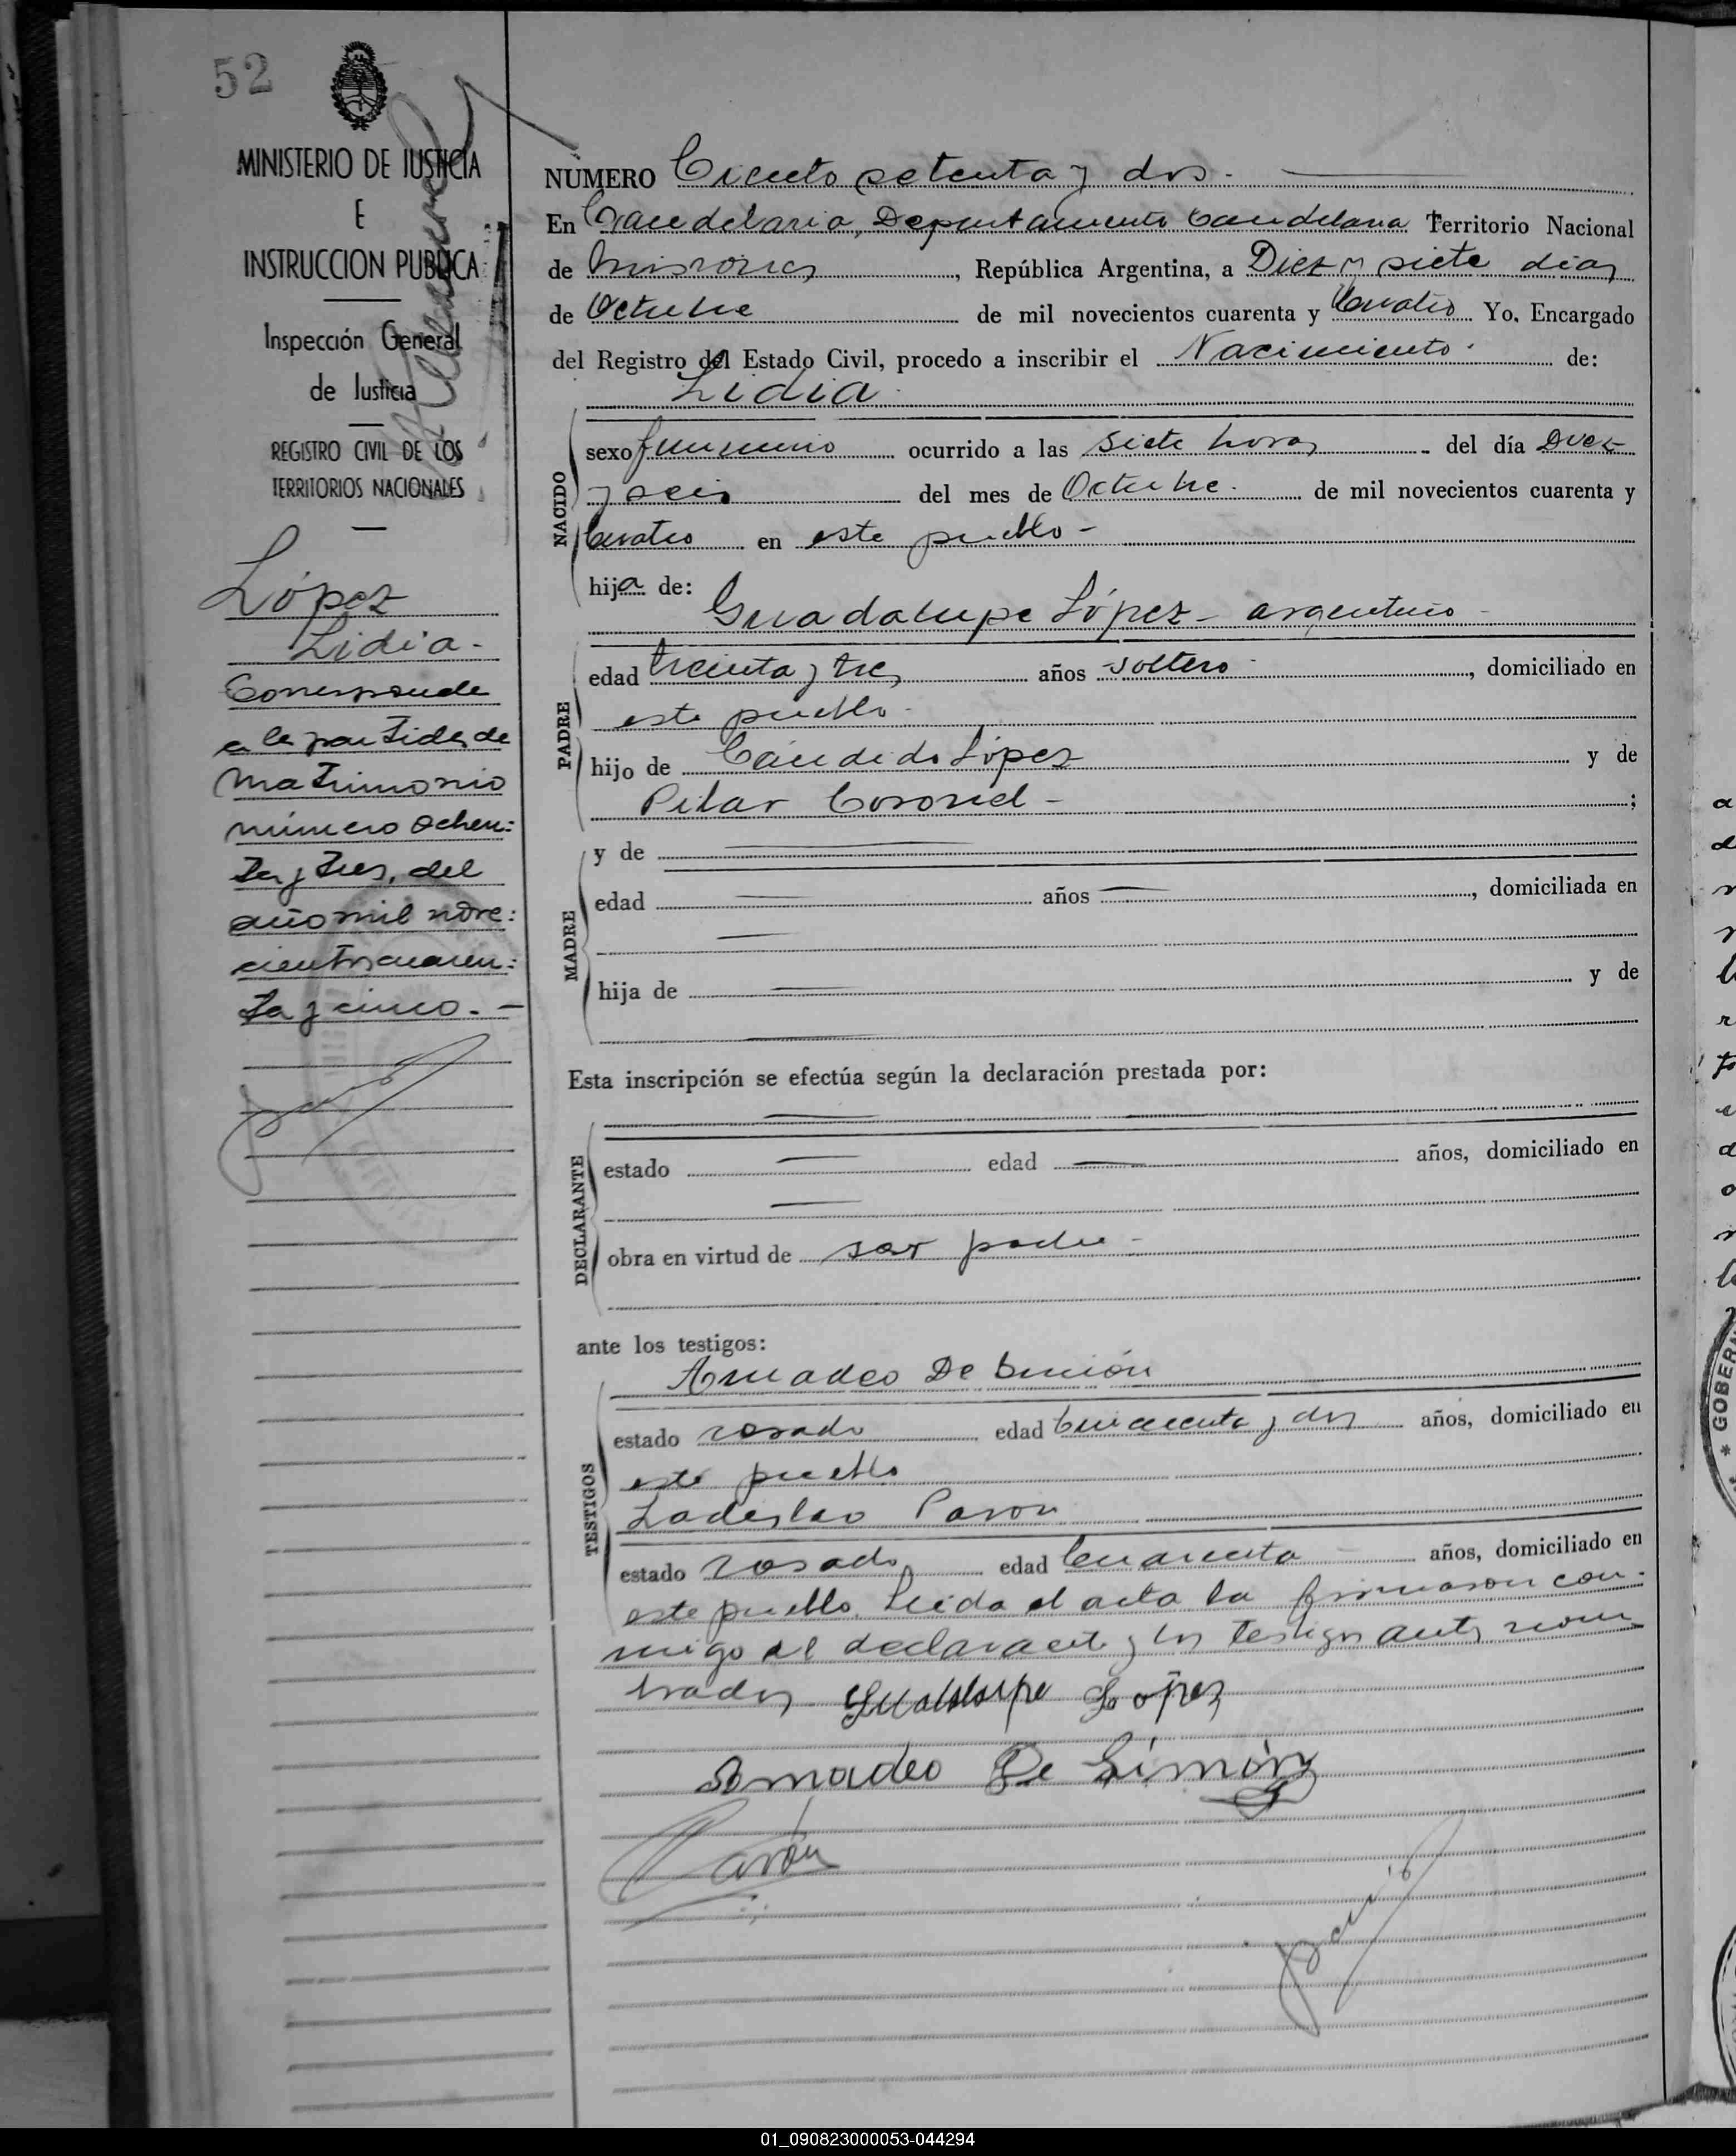 52
MINISTERIO DE JUSTICIA
E
INSTRUCCION PUBLICA
Inspección General
de Justicia
REGISTRO CIVIL DE LOS
TERRITORIOS NACIONALES
López
Lidia.
Corresponde
a la partida de
Matrimonio
número ochen:
ta y tres, del
año mil nove:
cientos cuaren:
ta y cinco. -
NÚMERO Ciento setenta y dos.
En Candelaria, Departamento Candelaria Territorio Nacional
de Misiones, República Argentina, a Diez y siete dias
de Octubre de mil novecientos cuarenta y Cuatro Yo. Encargado
del Registro del Estado Civil, procedo a inscribir el Nacimiento. de:
Lidia.
NACIDO
sexo femenino ocurrido a las siete horas del día Diez
y seis del mes de Octubre. de mil novecientos cuarenta y
Cuatro en este pueblo -
hija de:
Guadalupe López - argentino -
PADRE
edad treinta y tres años soltero, domiciliado en
este pueblo.
hijo de Cándido López y de
Pilar Coronel - ;
MADRE
y de
edad años, domiciliada en
hija de y de
Esta inscripción se efectúa según la declaración prestada por:
DECLARANTE
estado edad años, domiciliado en
obra en virtud de ser padre -
ante los testigos:
TESTIGOS
Amadeo De Simón
estado casado edad Cincuenta y dos años, domiciliado en
este pueblo
Ladeslao Pavon
estado casado edad Cuarenta - años, domiciliado en
este pueblo. Leida el acta la firmaron con-
migo el declarante y los testigos antes nom
brados Guadalupe López
Amadeo De Simón
Pavón
* GOBERN
01_090823000053-044294